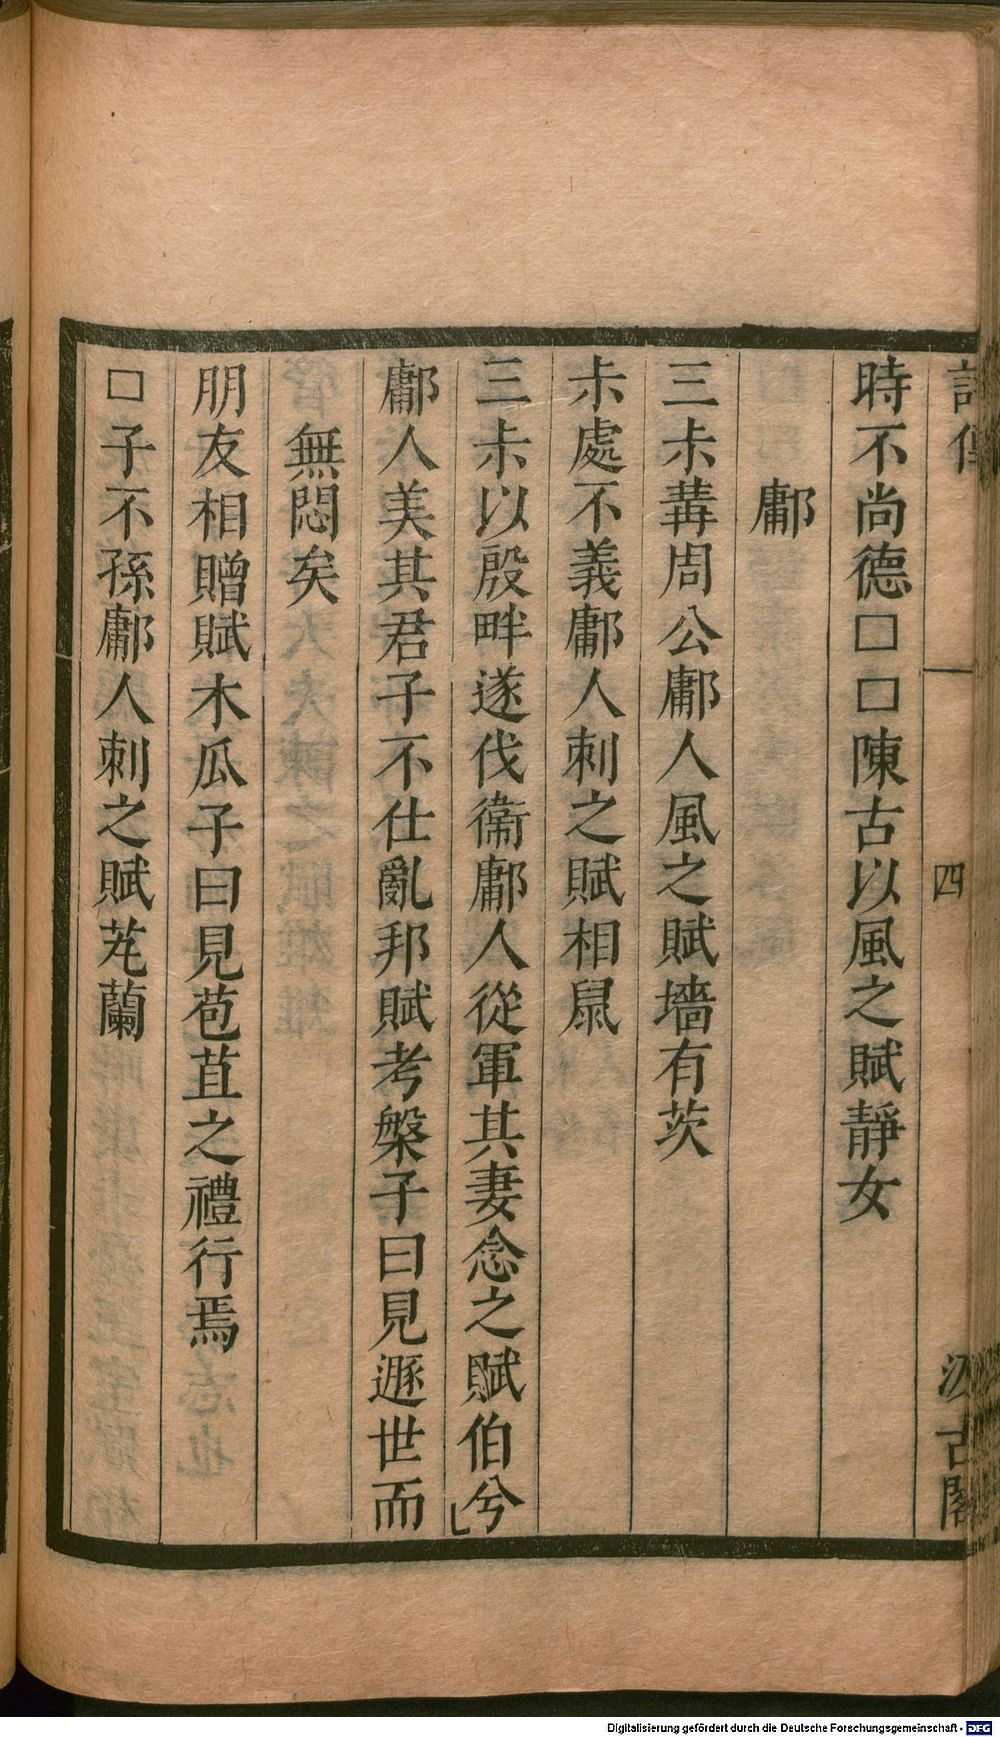 詩傳 四 汲古閣
時不尚德□□陳古以風之賦靜女
鄘
三尗冓周公鄘人風之賦墻有茨
尗處不義鄘人刺之賦相鼠
三尗以殷畔遂伐衞鄘人從軍其妻念之賦伯兮
鄘人美其君子不仕亂邦賦考槃子曰見遯世而
無悶矣
朋友相贈賦木瓜子曰見苞苴之禮行焉
□子不孫鄘人刺之賦芄蘭
Digitalisierung gefördert durch die Deutsche Forschungsgemeinschaft - DFG